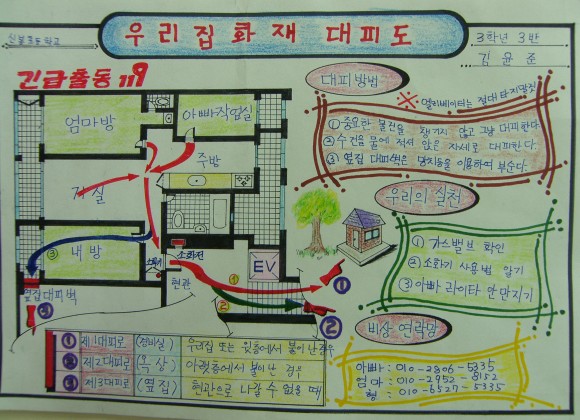 우리집화재 대피도
신불초등학교
3학년 3반
김윤준
긴급출동 119
엄마방
아빠작업실
주방
거실
내방
③
소화기
소화전
현관
EV
①
②
옆집 대피벽
③
①
②
대피방법
※ 엘리베이터는 절대 타지말것
① 중요한 물건을 챙기지 않고 그냥 대피한다.
② 수건을 물에 적셔 앉은 자세로 대피한다.
③ 옆집 대피벽은 망치등을 이용하여 부순다.
우리의 실천
① 가스밸브 확인
② 소화기 사용법 알기
③ 아빠 라이타 안만지기
비상 연락망
아빠: 010-2806-5335
엄마: 010-2952-8152
형: 010-6527-5335
① 제1대피로 (경비실) 우리집 또는 윗층에서 불이 난 경우
② 제2대피로 (옥상) 아랫층에서 불이 난 경우
③ 제3대피로 (옆집) 현관으로 나갈 수 없을 때